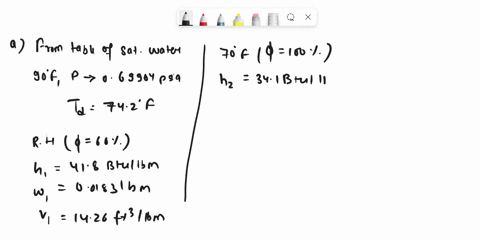 a) From table of sat. water
90°F, P → 0.69904 psia
Td = 74.2°F
R.H (ϕ = 60%)
h1 = 41.8 Btu/lbm
w1 = 0.0183 lbm
v1 = 14.26 ft3/lbm
70°F (ϕ = 100%)
h2 = 34.1 Btu/l